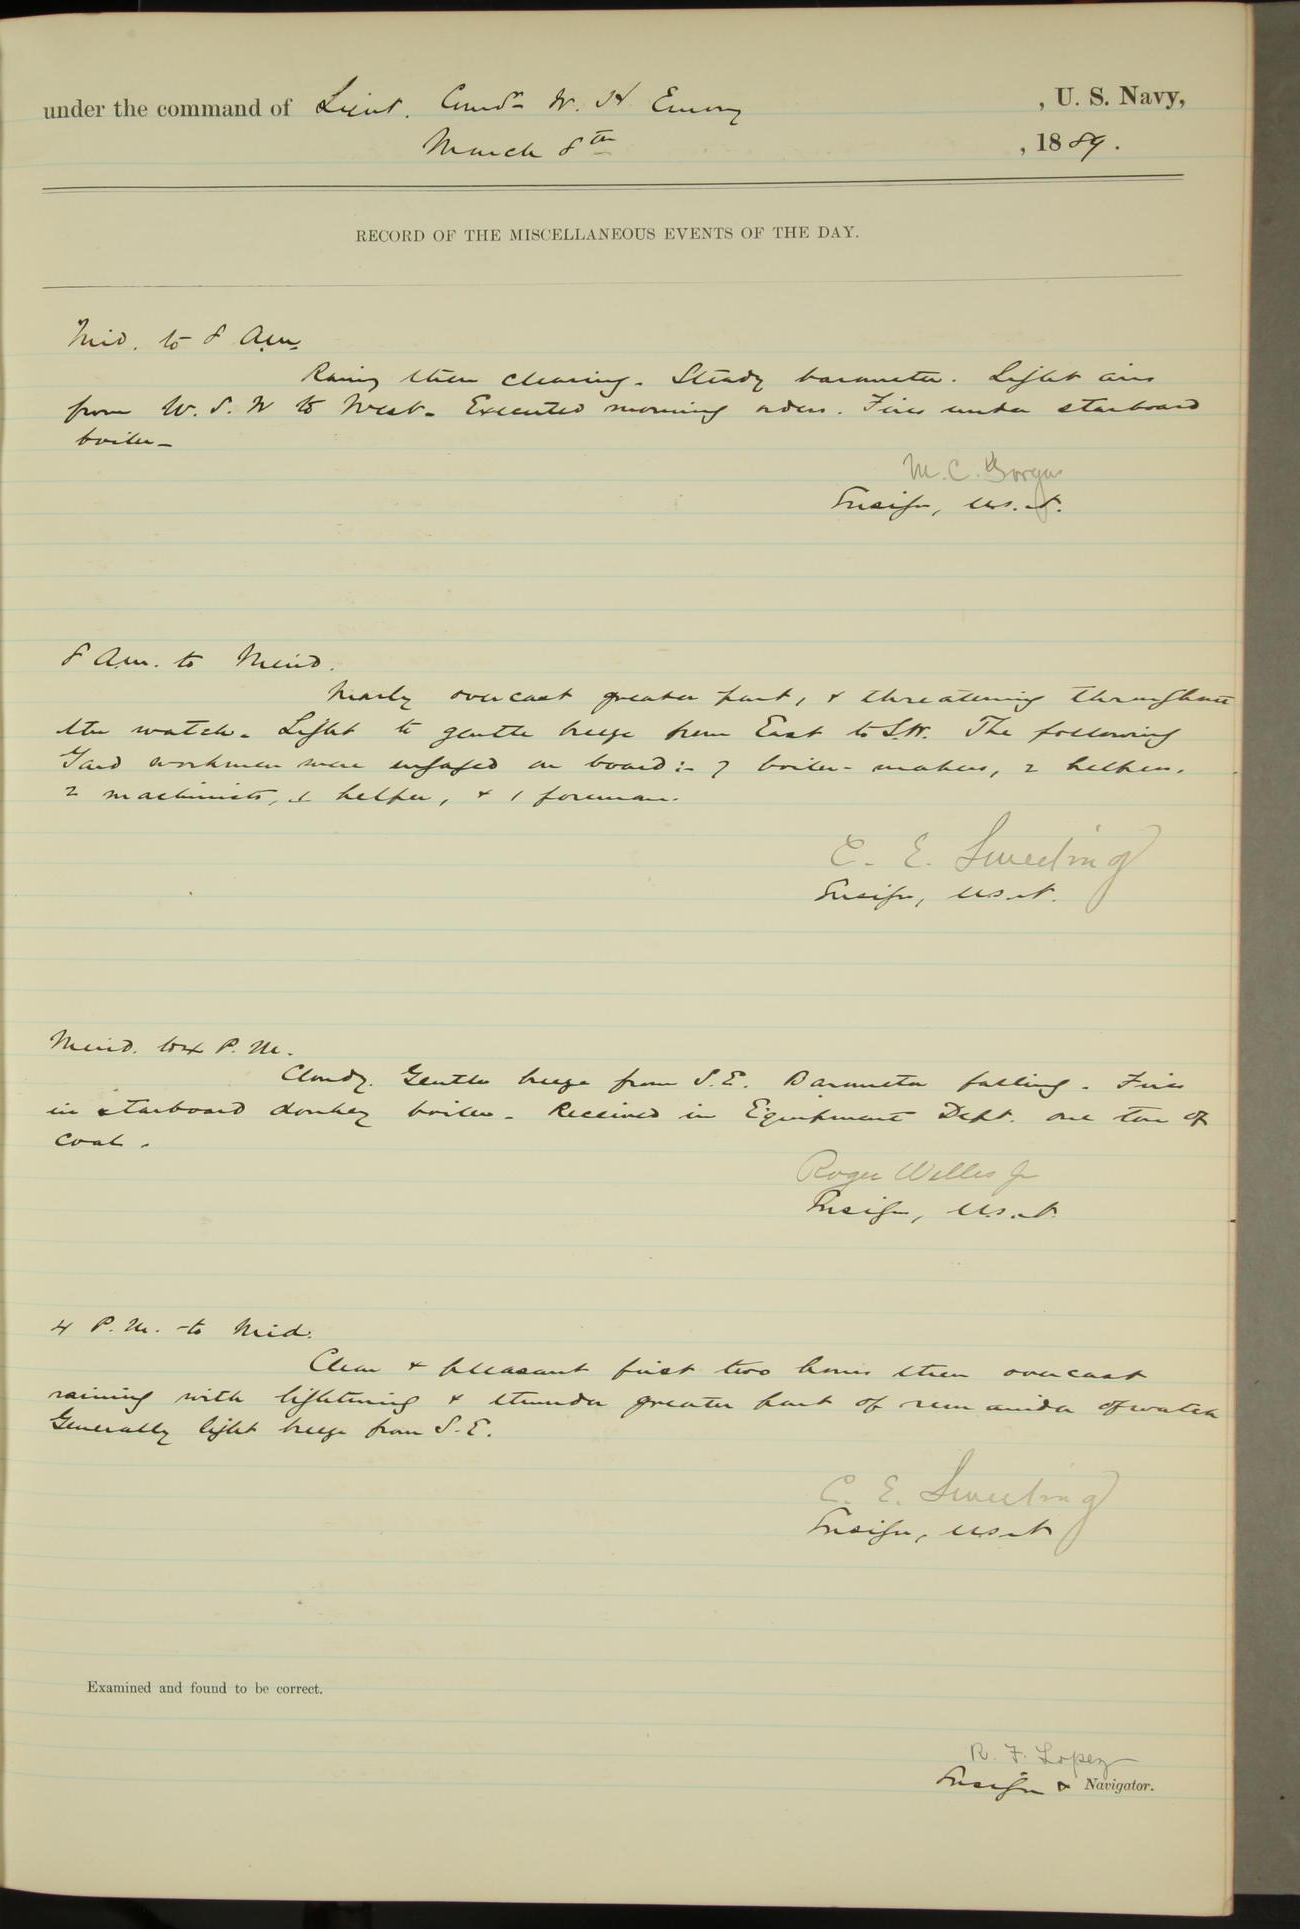 under the command of Lieut. Comdr W. H. Emory, U. S. Navy,
March 8th, 1889.
RECORD OF THE MISCELLANEOUS EVENTS OF THE DAY.
Mid. to 8 A.m.
Rainy then clearing. Steady barometer. Light airs
from W. S. W to West. Executed morning orders. Fires under starboard
boiler.
M. C. Gorgas
Ensign, U.S.N.
8 A.m. to Merid.
Nearly overcast greater part, & threatening throughout
the watch. Light to gentle breeze from East to S.W. The following
Yard workmen were engaged on board:- 7 boiler-makers, 2 helpers.
2 machinists, 1 helper, & 1 foreman.
C. E. Sweeting
Ensign, U.S.N.
Merid. to 4 P. M.
Cloudy. Gentle breeze from S.E. Barometer falling. Fires
in starboard donkey boiler. Received in Equipment Dept. one ton of
coal.
Roger Welles Jr
Ensign, U.S.N.
4 P. M. to Mid.
Clear & pleasant first two hours then overcast
raining with lightning & thunder greater part of remainder of watch
Generally light breeze from S.E.
C. E. Sweeting
Ensign, U.S.N
Examined and found to be correct.
R. F. Lopez
Ensign & Navigator.